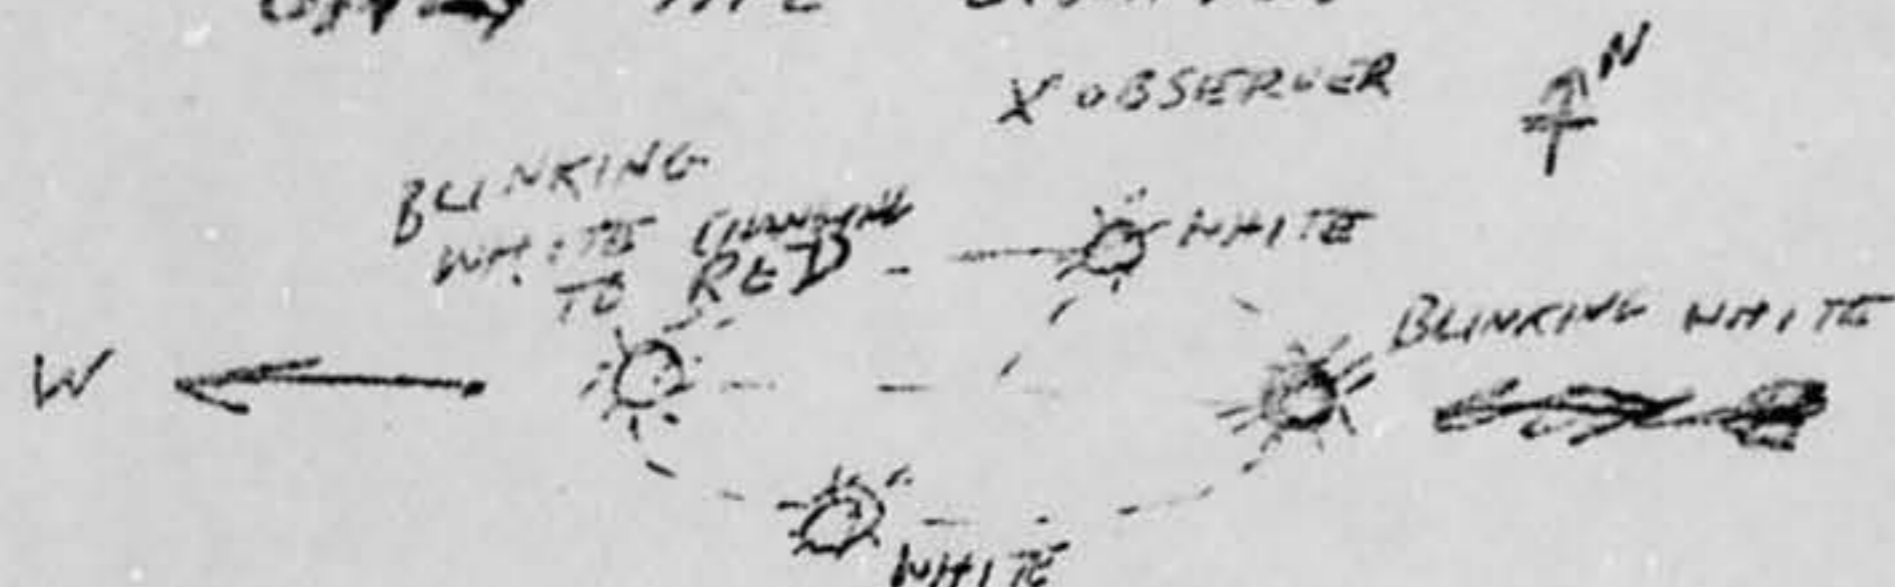 THE
X OBSERVER
N
BLINKING
WHITE CHANGING
TO RED
WHITE
BLINKING WHITE
W
WHITE